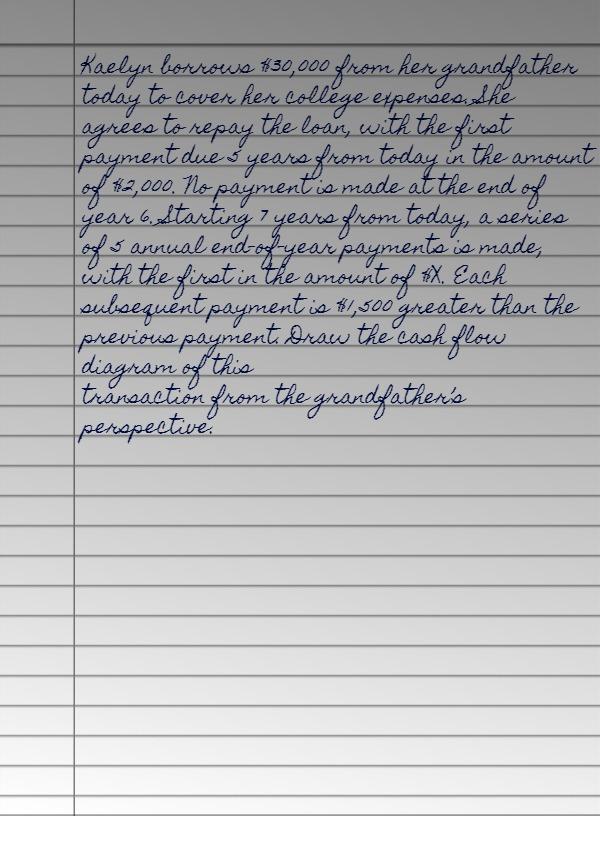 Kaelyn borrows $30,000 from her grandfather
today to cover her college expenses. She
agrees to repay the loan, with the first
payment due 5 years from today in the amount
of $2,000. No payment is made at the end of
year 6. Starting 7 years from today, a series
of 5 annual end-of-year payments is made,
with the first in the amount of $X. Each
subsequent payment is $1,500 greater than the
previous payment. Draw the cash flow
diagram of this
transaction from the grandfather's
perspective.